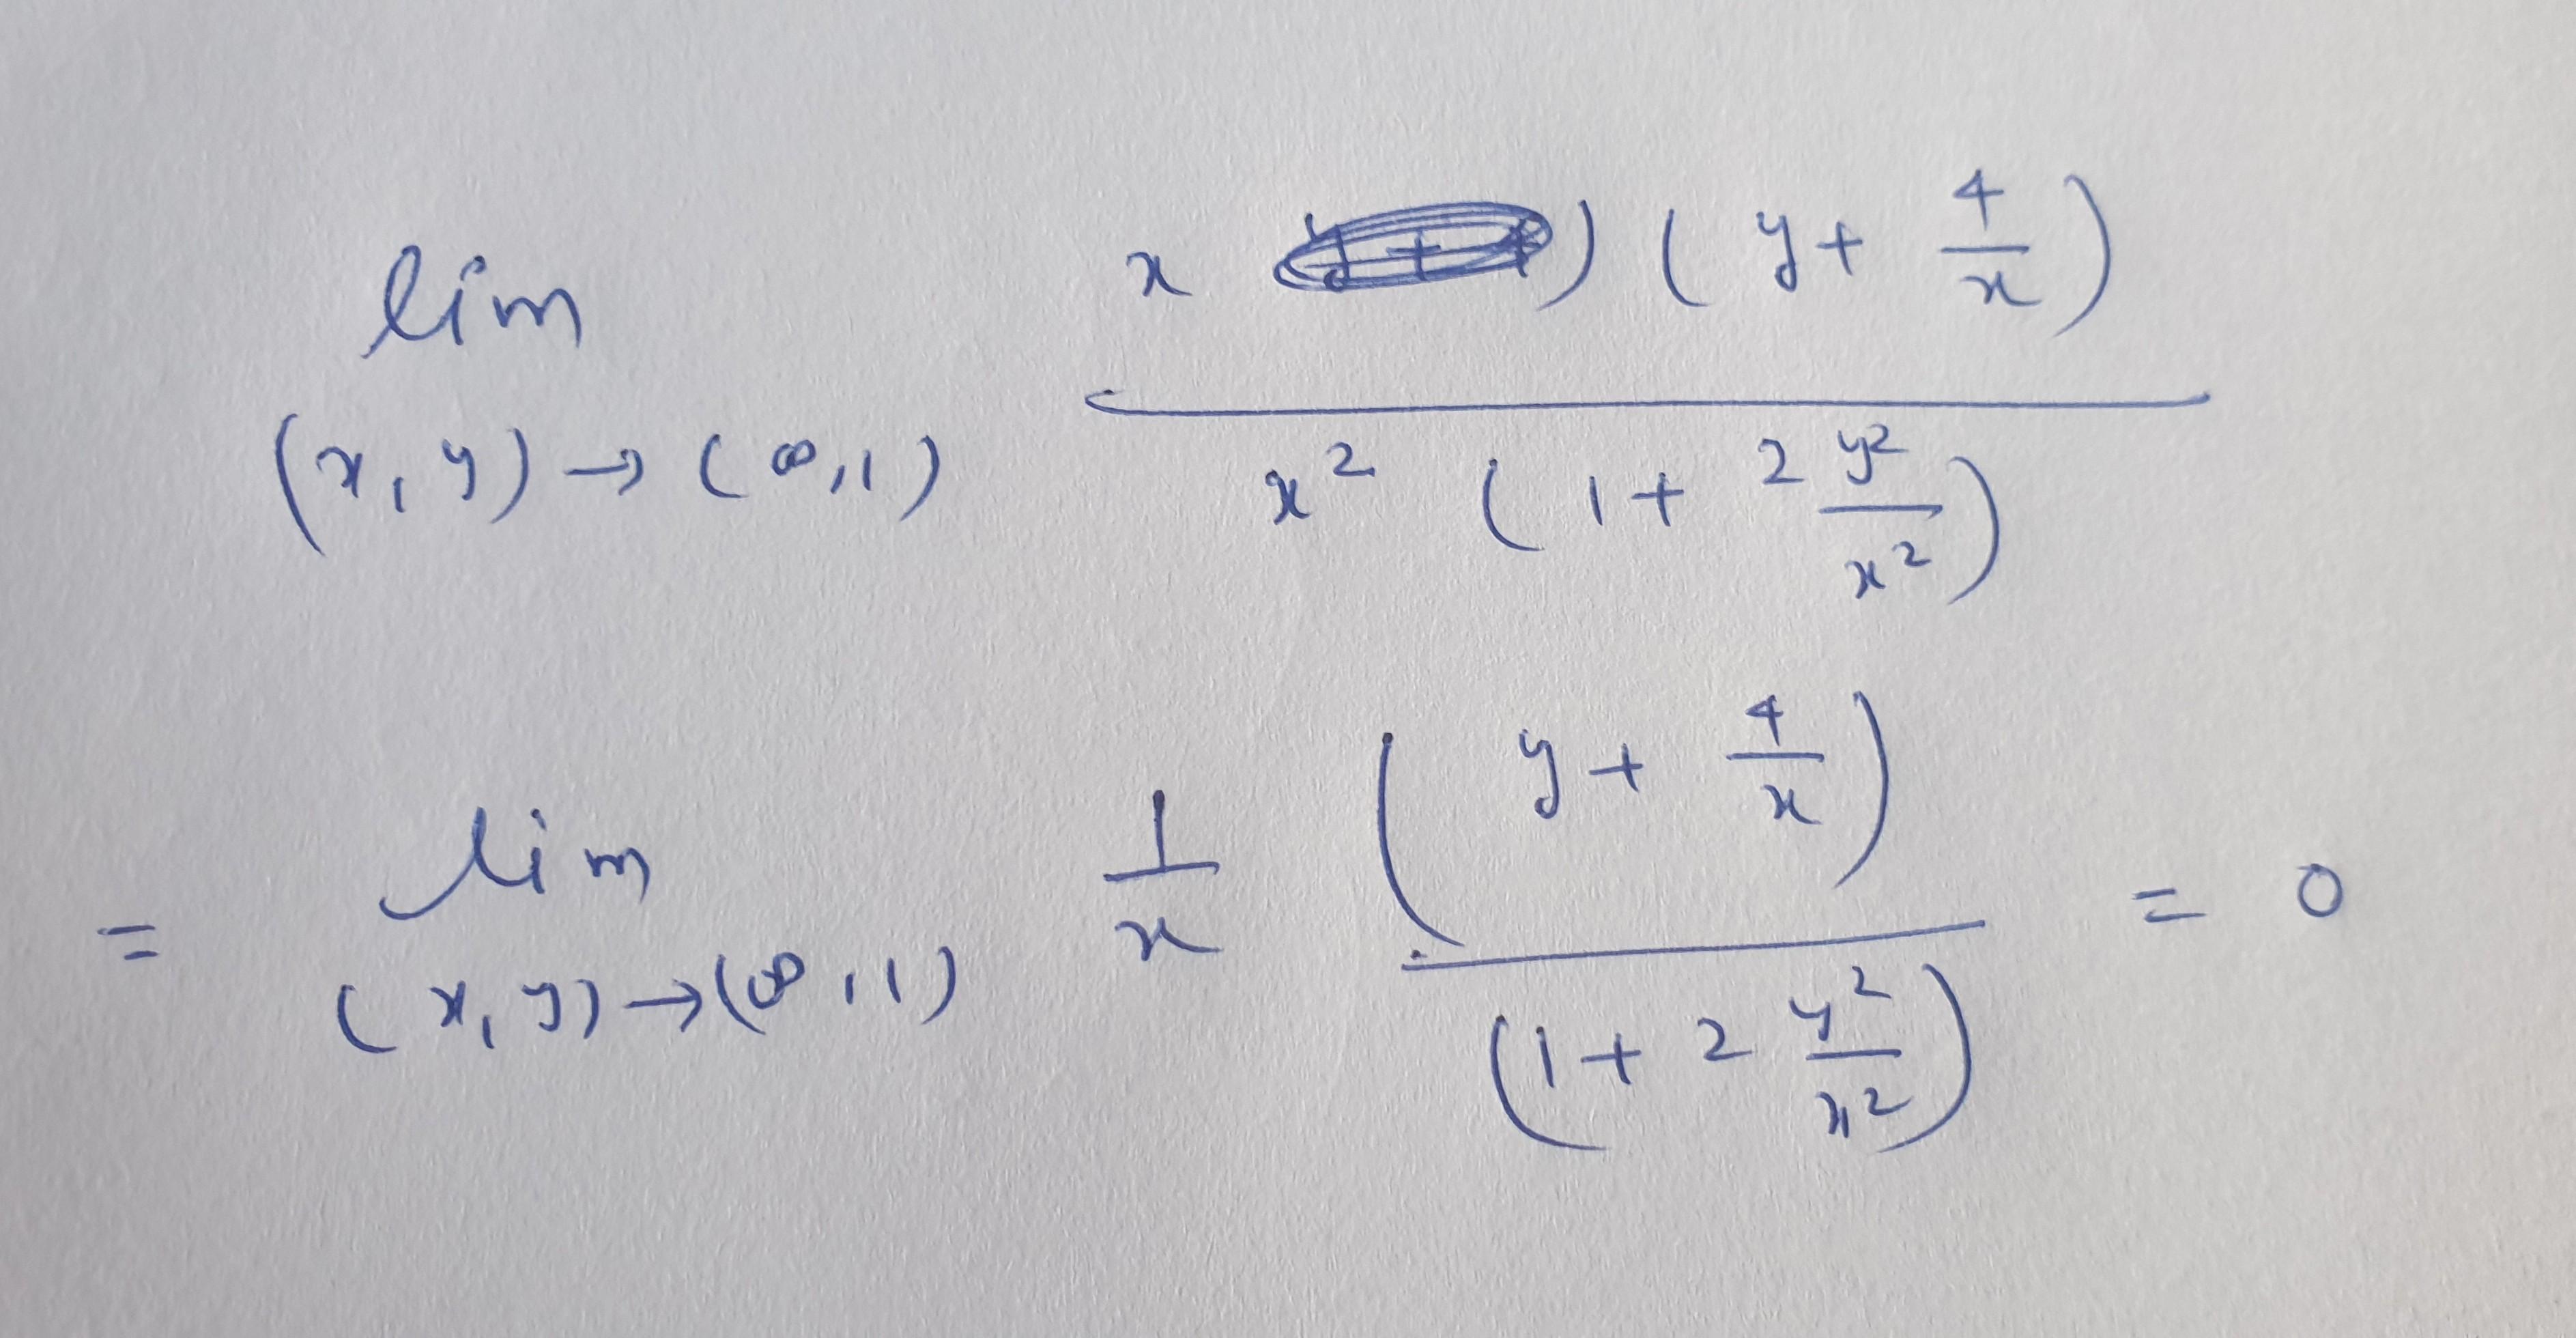 lim (x, y) → (∞, 1) x ) (y + 4/x) / x² (1 + 2 y²/x²)
= lim (x, y) → (∞, 1) 1/x (y + 4/x) / (1 + 2 y²/x²) = 0